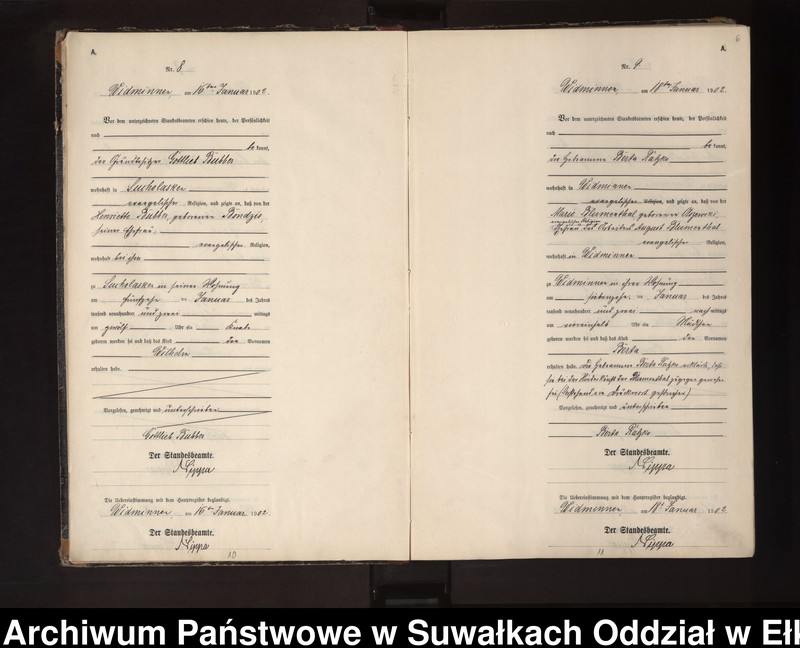 A.
Nr. 8.
Widminnen, am 16ten Januar 1902.
Vor dem unterzeichneten Standesbeamten erschien heute, der Persönlichkeit
nach
be kannt,
der Grundbesitzer Gottlieb Bubber
wohnhaft in Sucholasken
evangelischer Religion, und zeigte an, daß von der
Henriette Bubber, geborenen Bondzio,
seiner Ehefrau,
evangelischer Religion,
wohnhaft bei ihm
zu Sucholasken in seiner Wohnung
am fünfzehn ten Januar des Jahres
tausend neunhundert und zwei mittags
um zwölf Uhr ein Knabe
geboren worden sei und daß das Kind den Vornamen
Wilhelm
erhalten habe.
Vorgelesen, genehmigt und unterschrieben
Gottlieb Bubber
Der Standesbeamte.
Lippa
Die Uebereinstimmung mit dem Hauptregister beglaubigt.
Widminnen, am 16ten Januar 1902.
Der Standesbeamte.
Lippa
10
6
A.
Nr. 9.
Widminnen, am 18ten Januar 1902.
Vor dem unterzeichneten Standesbeamten erschien heute, der Persönlichkeit
nach
be kannt,
die Hebeamme Berta Katzko
wohnhaft in Widminnen
evangelischer Religion, und zeigte an, daß von der
Marie Blumenthal, geborenen
evangelischer Religion
Ehefrau des Arbeiters August Blumenthal
evangelischer Religion,
wohnhaft in Widminnen
zu Widminnen in ihrer Wohnung
am siebenzehn ten Januar des Jahres
tausend neunhundert und zwei nachmittags
um Uhr ein Mädchen
geboren worden sei und daß das Kind den Vornamen
Berta
erhalten habe. Die Hebeamme Berta Katzko erklärte, daß
sie bei der Niederkunft der Blumenthal zugegen gewesen
sei. (Vorstehend ein Druckwort gestrichen)
Vorgelesen, genehmigt und unterschrieben
Berta Katzko
Der Standesbeamte.
Lippa
Die Uebereinstimmung mit dem Hauptregister beglaubigt.
Widminnen, am 18ten Januar 1902.
Der Standesbeamte.
Lippa
11
Archiwum Państwowe w Suwałkach Oddział w Ełk